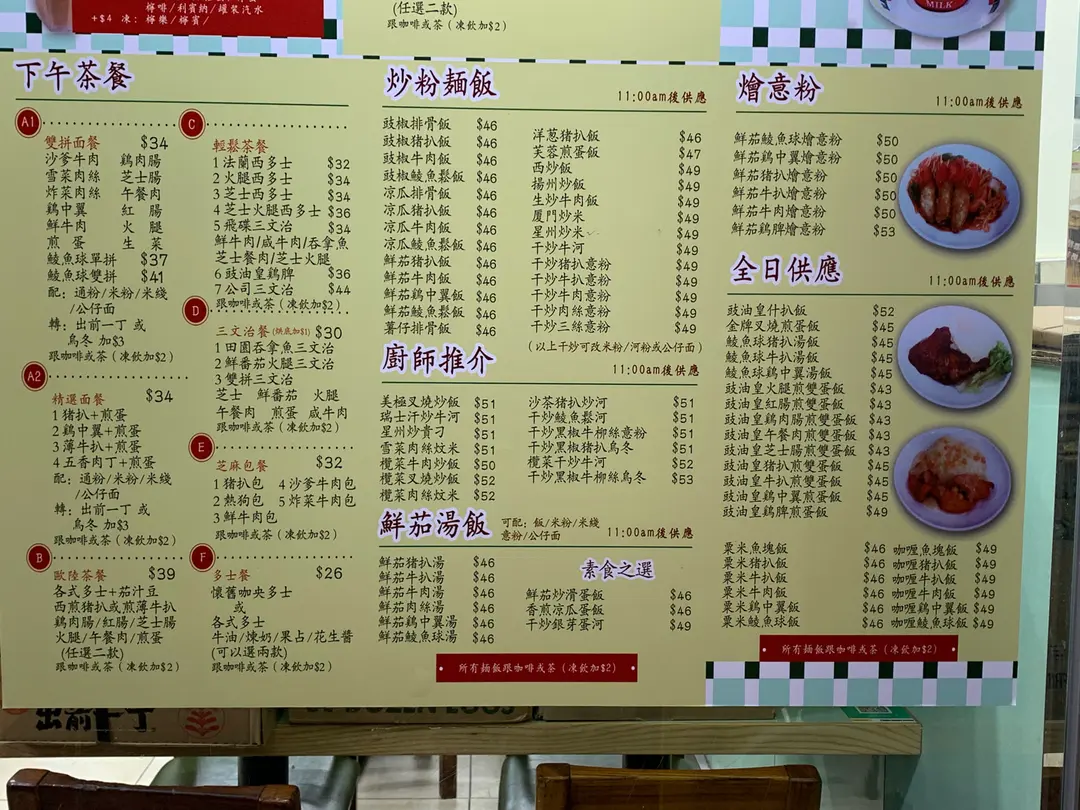 檸啡/利賓納/罐裝汽水
+$4 凍: 檸樂/檸賓/
(任選二款)
跟咖啡或茶(凍飲加$2)
MILK
下午茶餐
A1
雙拼面餐 $34
沙爹牛肉 鷄肉腸
雪菜肉絲 芝士腸
炸菜肉絲 午餐肉
鷄中翼 紅腸
鮮牛肉 火腿
煎蛋 生菜
鯪魚球單拼 $37
鯪魚球雙拼 $41
配: 通粉/米粉/米綫
/公仔面
轉: 出前一丁 或
烏冬 加$3
跟咖啡或茶(凍飲加$2)
A2
精選面餐 $34
1 猪扒+煎蛋
2 鷄中翼+煎蛋
3 薄牛扒+煎蛋
4 五香肉丁+煎蛋
配: 通粉/米粉/米綫
/公仔面
轉: 出前一丁 或
烏冬 加$3
跟咖啡或茶(凍飲加$2)
B
歐陸茶餐 $39
各式多士+茄汁豆
西煎猪扒或煎薄牛扒
鷄肉腸/紅腸/芝士腸
火腿/午餐肉/煎蛋
(任選二款)
跟咖啡或茶(凍飲加$2)
C
輕鬆茶餐
1 法蘭西多士 $32
2 火腿西多士 $34
3 芝士西多士 $34
4 芝士火腿西多士 $36
5 飛碟三文治 $34
鮮牛肉/咸牛肉/吞拿魚
芝士餐肉/芝士火腿
6 豉油皇鷄髀 $36
7 公司三文治 $44
跟咖啡或茶(凍飲加$2)
D
三文治餐(烘底加$1) $30
1 田園吞拿魚三文治
2 鮮番茄火腿三文治
3 雙拼三文治
芝士 鮮番茄 火腿
午餐肉 煎蛋 咸牛肉
跟咖啡或茶(凍飲加$2)
E
芝麻包餐 $32
1 猪扒包 4 沙爹牛肉包
2 熱狗包 5 炸菜牛肉包
3 鮮牛肉包
跟咖啡或茶(凍飲加$2)
F
多士餐 $26
懷舊咖央多士
或
各式多士
牛油/煉奶/果占/花生醬
(可以選兩款)
跟咖啡或茶(凍飲加$2)
炒粉麵飯 11:00am後供應
豉椒排骨飯 $46
豉椒猪扒飯 $46
豉椒牛肉飯 $46
豉椒鯪魚鬆飯 $46
凉瓜排骨飯 $46
凉瓜猪扒飯 $46
凉瓜牛肉飯 $46
凉瓜鯪魚鬆飯 $46
鮮茄猪扒飯 $46
鮮茄牛肉飯 $46
鮮茄鷄中翼飯 $46
鮮茄鯪魚鬆飯 $46
薯仔排骨飯 $46
洋葱猪扒飯 $46
芙蓉煎蛋飯 $47
西炒飯 $49
揚州炒飯 $49
生炒牛肉飯 $49
厦門炒米 $49
星州炒米 $49
干炒牛河 $49
干炒猪扒意粉 $49
干炒牛扒意粉 $49
干炒牛肉意粉 $49
干炒肉絲意粉 $49
干炒三絲意粉 $49
(以上干炒可改米粉/河粉或公仔面)
廚師推介 11:00am後供應
美極叉燒炒飯 $51
瑞士汗炒牛河 $51
星州炒貴刁 $51
雪菜肉絲炆米 $51
欖菜牛肉炒飯 $50
欖菜叉燒炒飯 $52
欖菜肉絲炆米 $52
沙茶猪扒炒河 $51
干炒鯪魚鬆河 $51
干炒黑椒牛柳絲意粉 $51
干炒黑椒猪扒烏冬 $51
欖菜干炒牛河 $52
干炒黑椒牛柳絲烏冬 $53
鮮茄湯飯 可配: 飯/米粉/米綫
意粉/公仔面 11:00am後供應
鮮茄猪扒湯 $46
鮮茄牛肉湯 $46
鮮茄肉絲湯 $46
鮮茄鷄中翼湯 $46
鮮茄鯪魚球湯 $46
素食之選
鮮茄炒滑蛋飯 $46
香煎凉瓜蛋飯 $46
干炒銀芽蛋河 $49
所有麵飯跟咖啡或茶(凍飲加$2)
燴意粉 11:00am後供應
鮮茄鯪魚球燴意粉 $50
鮮茄鷄中翼燴意粉 $50
鮮茄猪扒燴意粉 $50
鮮茄牛扒燴意粉 $50
鮮茄牛肉燴意粉 $50
鮮茄鷄髀燴意粉 $53
全日供應 11:00am後供應
豉油皇什扒飯 $52
金牌叉燒煎蛋飯 $45
鯪魚球猪扒湯飯 $45
鯪魚球牛扒湯飯 $45
鯪魚球鷄中翼湯飯 $45
豉油皇火腿煎雙蛋飯 $43
豉油皇紅腸煎雙蛋飯 $43
豉油皇鷄肉腸煎雙蛋飯 $43
豉油皇午餐肉煎雙蛋飯 $43
豉油皇芝士腸煎雙蛋飯 $43
豉油皇猪扒煎雙蛋飯 $45
豉油皇牛扒煎雙蛋飯 $45
豉油皇鷄中翼煎蛋飯 $45
豉油皇鷄髀煎蛋飯 $49
粟米魚塊飯 $46
粟米猪扒飯 $46
粟米牛扒飯 $46
粟米牛肉飯 $46
粟米鷄中翼飯 $46
粟米鯪魚球飯 $46
咖喱魚塊飯 $49
咖喱猪扒飯 $49
咖喱牛扒飯 $49
咖喱牛肉飯 $49
咖喱鷄中翼飯 $49
咖喱鯪魚球飯 $49
所有麵飯跟咖啡或茶(凍飲加$2)
出前一丁
DOZEN EGGS